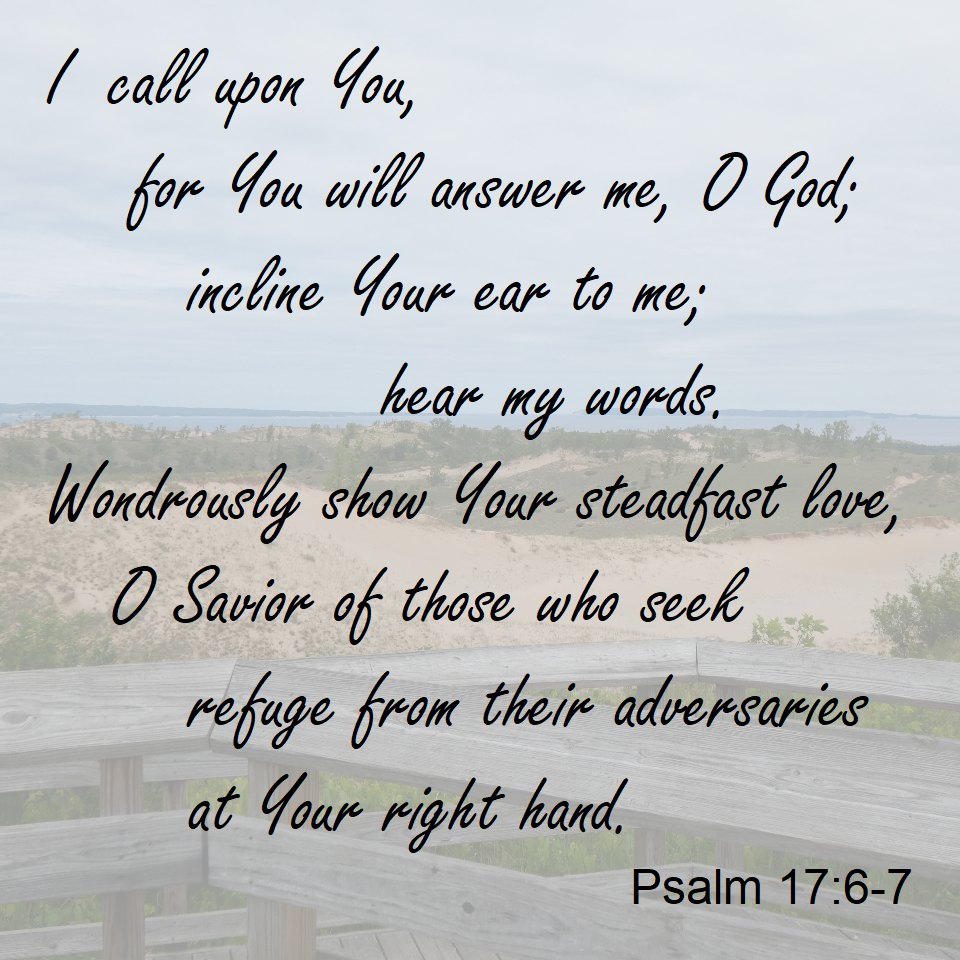 I call upon You,
for You will answer me, O God;
incline Your ear to me;
hear my words.
Wondrously show Your steadfast love,
O Savior of those who seek
refuge from their adversaries
at Your right hand.
Psalm 17:6-7